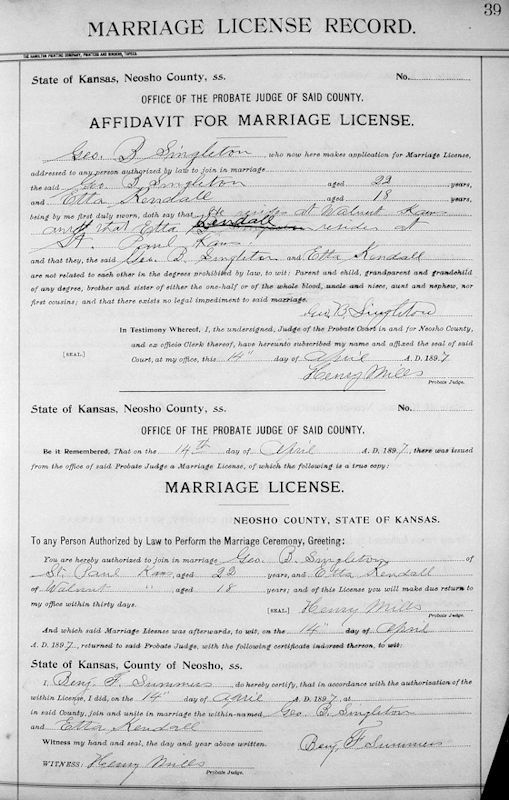 39
MARRIAGE LICENSE RECORD.
THE HAMILTON PRINTING COMPANY, PRINTERS AND BINDERS, TOPEKA.
State of Kansas, Neosho County, ss. No.
OFFICE OF THE PROBATE JUDGE OF SAID COUNTY.
AFFIDAVIT FOR MARRIAGE LICENSE.
Geo. B. Singleton, who now here makes application for Marriage License,
addressed to any person authorized by law to join in marriage
the said Geo B. Singleton aged 22 years,
and Etta Kendall aged 18 years,
being by me first duly sworn, doth say that He resides at Walnut Kans
and that Etta Kendall resides at
St. Paul Kans.
and that they, the said Geo. B. Singleton and Etta Kendall
are not related to each other in the degrees prohibited by law, to wit: Parent and child, grandparent and grandchild
of any degree, brother and sister of either the one-half or of the whole blood, uncle and niece, aunt and nephew, nor
first cousins; and that there exists no legal impediment to said marriage.
Geo. B. Singleton
In Testimony Whereof, I, the undersigned, Judge of the Probate Court in and for Neosho County,
and ex officio Clerk thereof, have hereunto subscribed my name and affixed the seal of said
[SEAL.] Court, at my office, this 14" day of April A. D. 1897.
Henry Mills
Probate Judge.
State of Kansas, Neosho County, ss. No.
OFFICE OF THE PROBATE JUDGE OF SAID COUNTY.
Be it Remembered, That on the 14th day of April A. D. 1897, there was issued
from the office of said Probate Judge a Marriage License, of which the following is a true copy:
MARRIAGE LICENSE.
NEOSHO COUNTY, STATE OF KANSAS.
To any Person Authorized by Law to Perform the Marriage Ceremony, Greeting:
You are hereby authorized to join in marriage Geo. B. Singleton of
St. Paul Kans, aged 22 years, and Etta Kendall
of Walnut " aged 18 years; and of this License you will make due return to
my office within thirty days. [SEAL] Henry Mills
Probate Judge.
And which said Marriage License was afterwards, to wit, on the 14" day of April
A. D. 1897, returned to said Probate Judge, with the following certificate indorsed thereon, to wit:
State of Kansas, County of Neosho, ss.
I, Benj. F. Summers do hereby certify, that in accordance with the authorization of the
within License, I did, on the 14" day of April A. D. 1897, at
in said County, join and unite in marriage the within-named Geo. B. Singleton
and Etta Kendall
Witness my hand and seal, the day and year above written. Benj. F Summers
WITNESS: Henry Mills
Probate Judge.